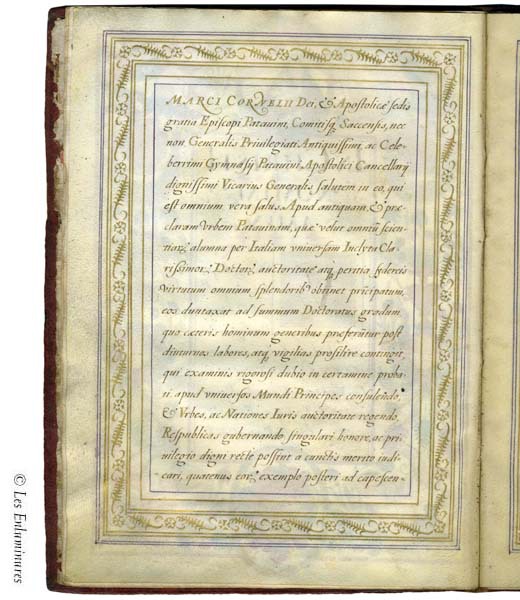 MARCI CORNELII Dei, & Apostolicæ sedis
gratia Episcopi Patauini, Comitisq; Saccensis, nec
non Generalis Priuilegiati Antiquissimi, ac Cele-
berrimi Gymnasij Patauini Apostolici Cancellarij
dignissimi Vicarius Generalis salutem in eo, qui
est omnium vera salus. Apud antiquam, & præ-
claram Vrbem Patauinam, quæ velut omniũ scien-
tiarꝝ alumna per Italiam vniuersam Inclyta Cla-
rissimorꝝ Doctorꝝ auctoritate atq; peritia
virtutum omnium splendorib9 obtinet prĩcipatum,
eos duntaxat ad summum Doctoratus gradum,
quo cæteris hominum generibus præferũtur post
diuturnos labores, atq; vigilias prosilire contingit,
qui examinis rigorosi dubio in certamine proba-
ti apud vniuersos Mundi Principes consulẽdo,
& Vrbes, ac Nationes Iuris auctoritate regendo,
Respublicas gubernando, singulari honore, ac pri-
uilegio digni recte possint a cunctis merito iudi-
cari, quatenus eorꝝ exemplo posteri ad capescen-
© Les Enluminures